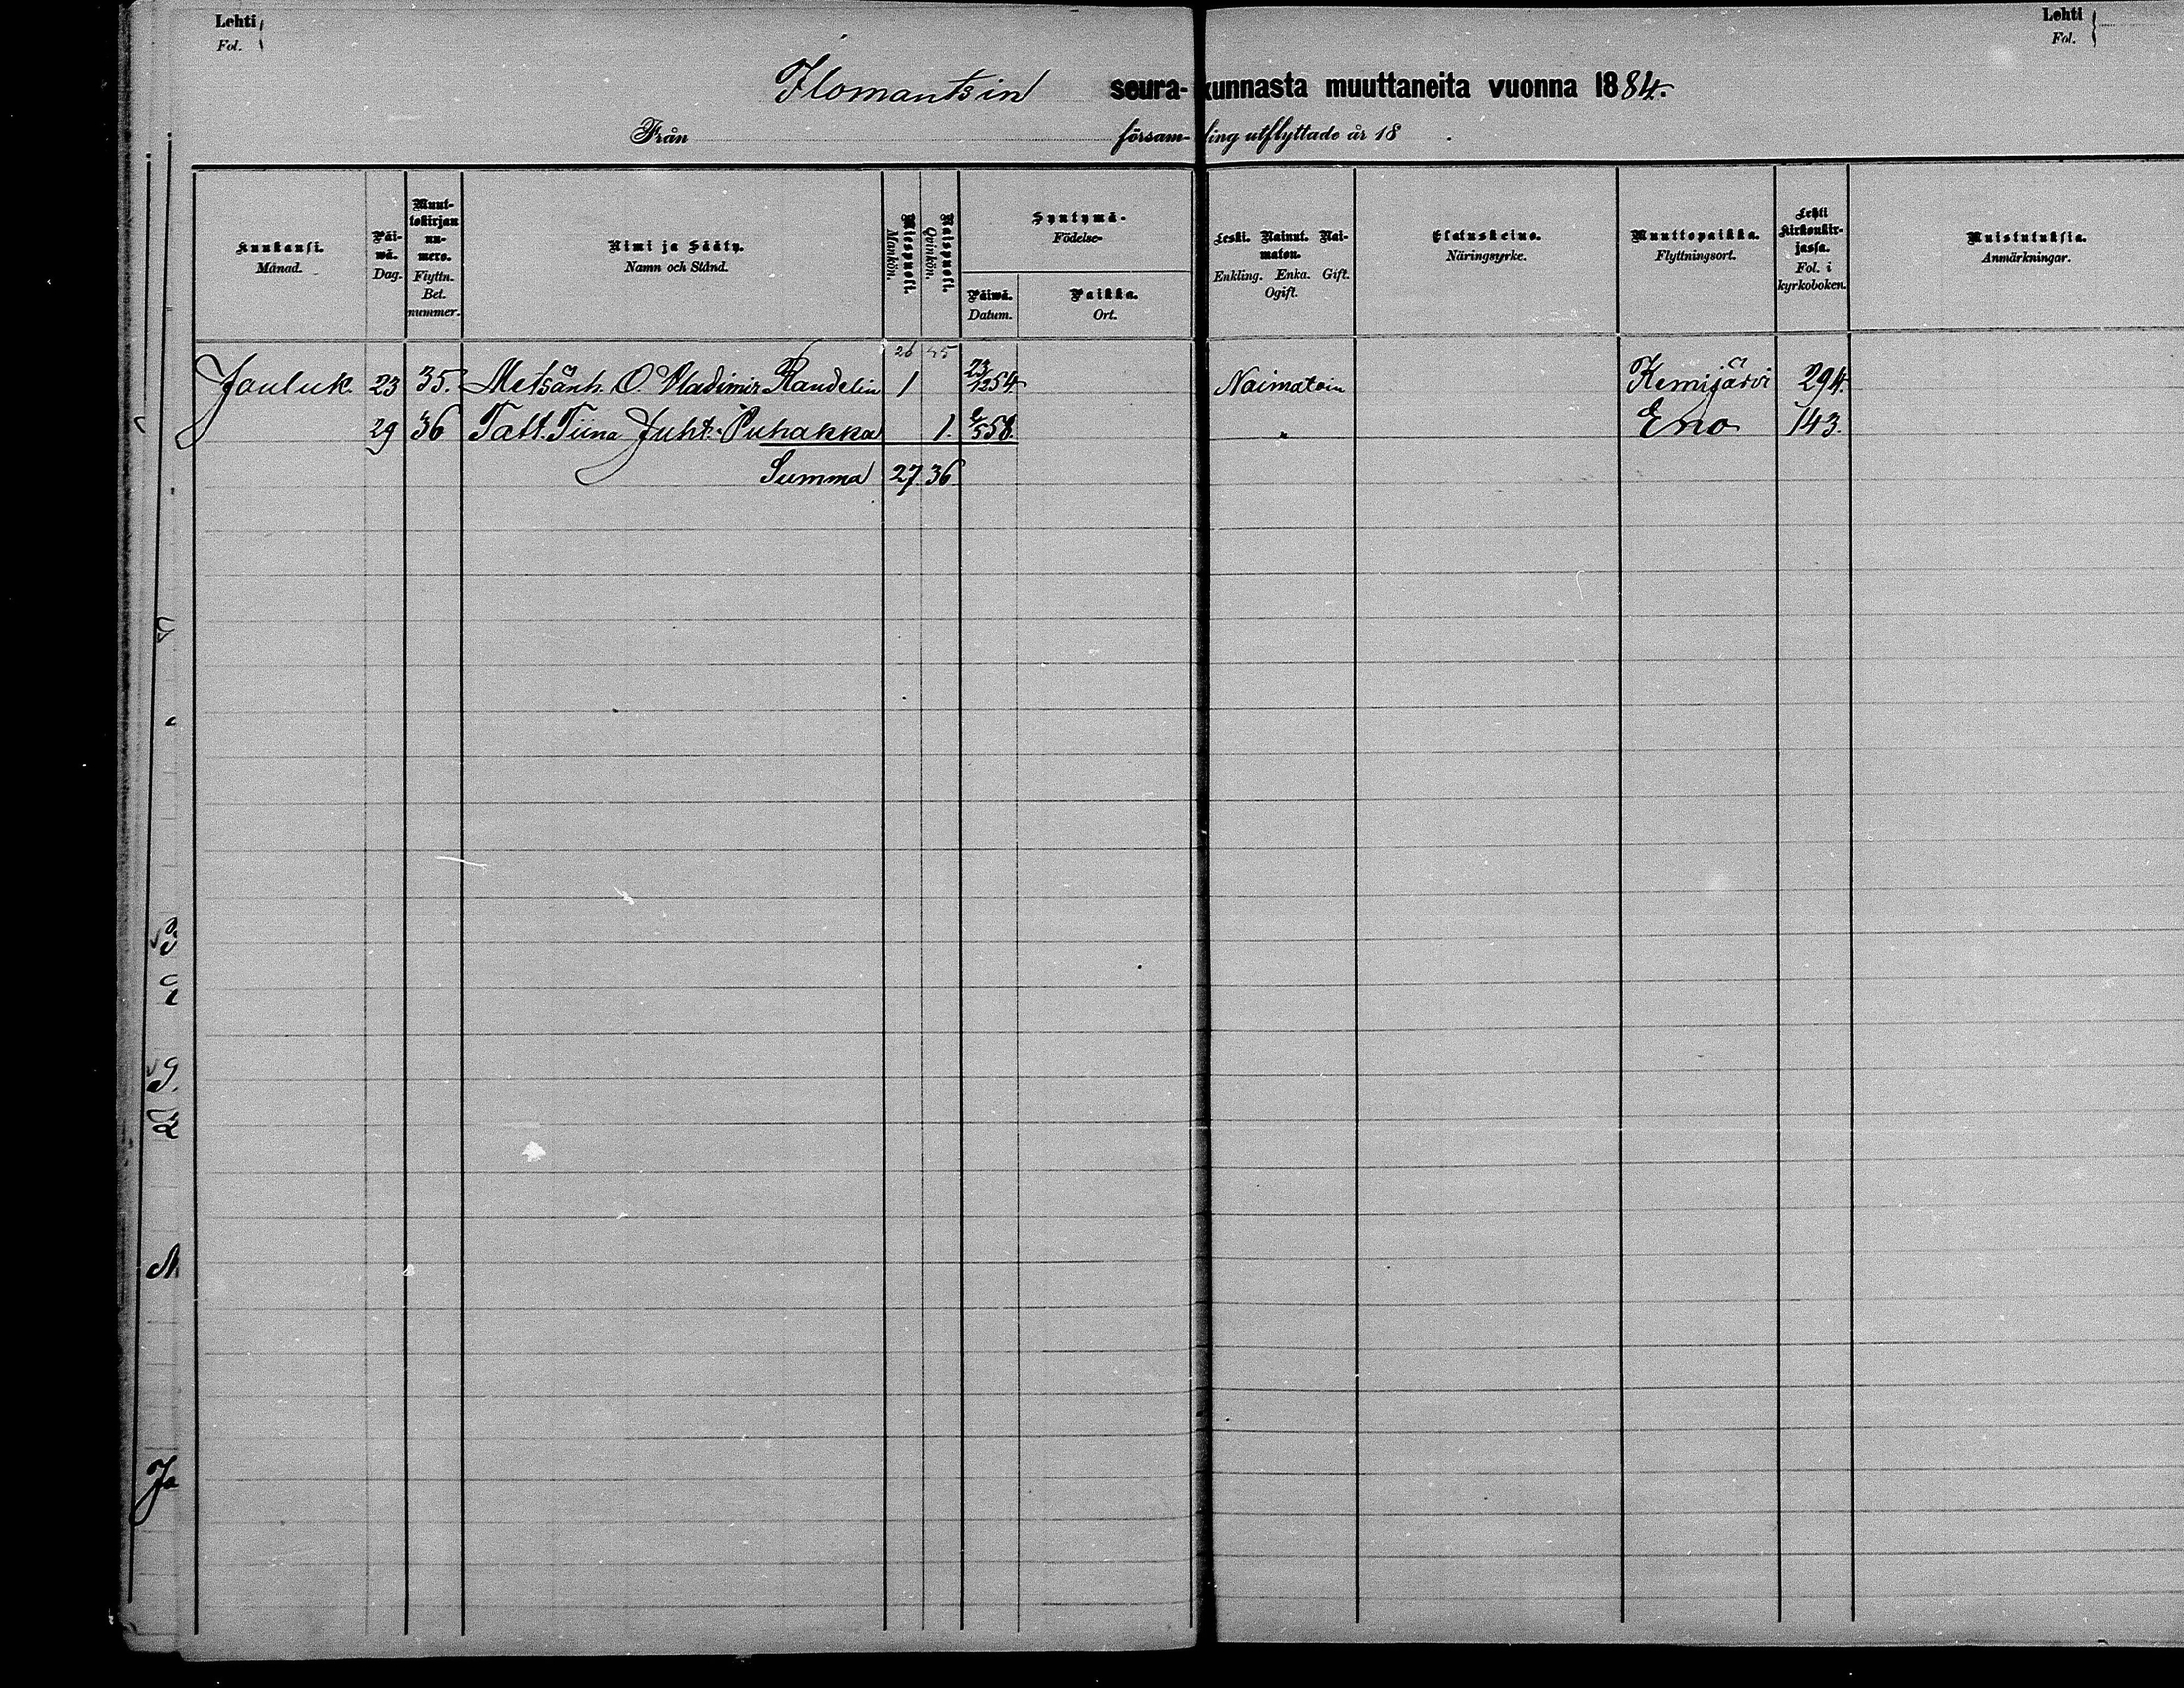 Lehti
Fol.
Lehti
Fol.
Ilomantsin seura-kunnasta muuttaneita vuonna 1884.
Från försam-ling utflyttade år 18 .
Kuukausi.
Månad.
Päi-
wä.
Dag.
Muut-
tokirjan
nu-
mero.
Flyttn.
Bet.
nummer.
Nimi ja Sääty.
Namn och Stånd.
Miespuoli.
Mankön.
Naispuoli.
Qvinkön.
Syntymä-
Födelse-
Päiwä.
Datum.
Paikka.
Ort.
Leski. Nainut. Nai-
maton.
Enkling. Enka. Gift.
Ogift.
Elatuskeino.
Näringsyrke.
Muuttopaikka.
Flyttningsort.
Lehti
kirkonkir-
jassa.
Fol. i
kyrkoboken.
Muistutuksia.
Anmärkningar.
26
Jouluk. 23 35. Metsänh. O. Vladimir Randelin 1 23/12 54. Naimatoin Kemijärvi 294.
29 36 Talt. Tiina Juht. Puhakka 1. 2/5 58. " Eno 143.
Summa 27 36